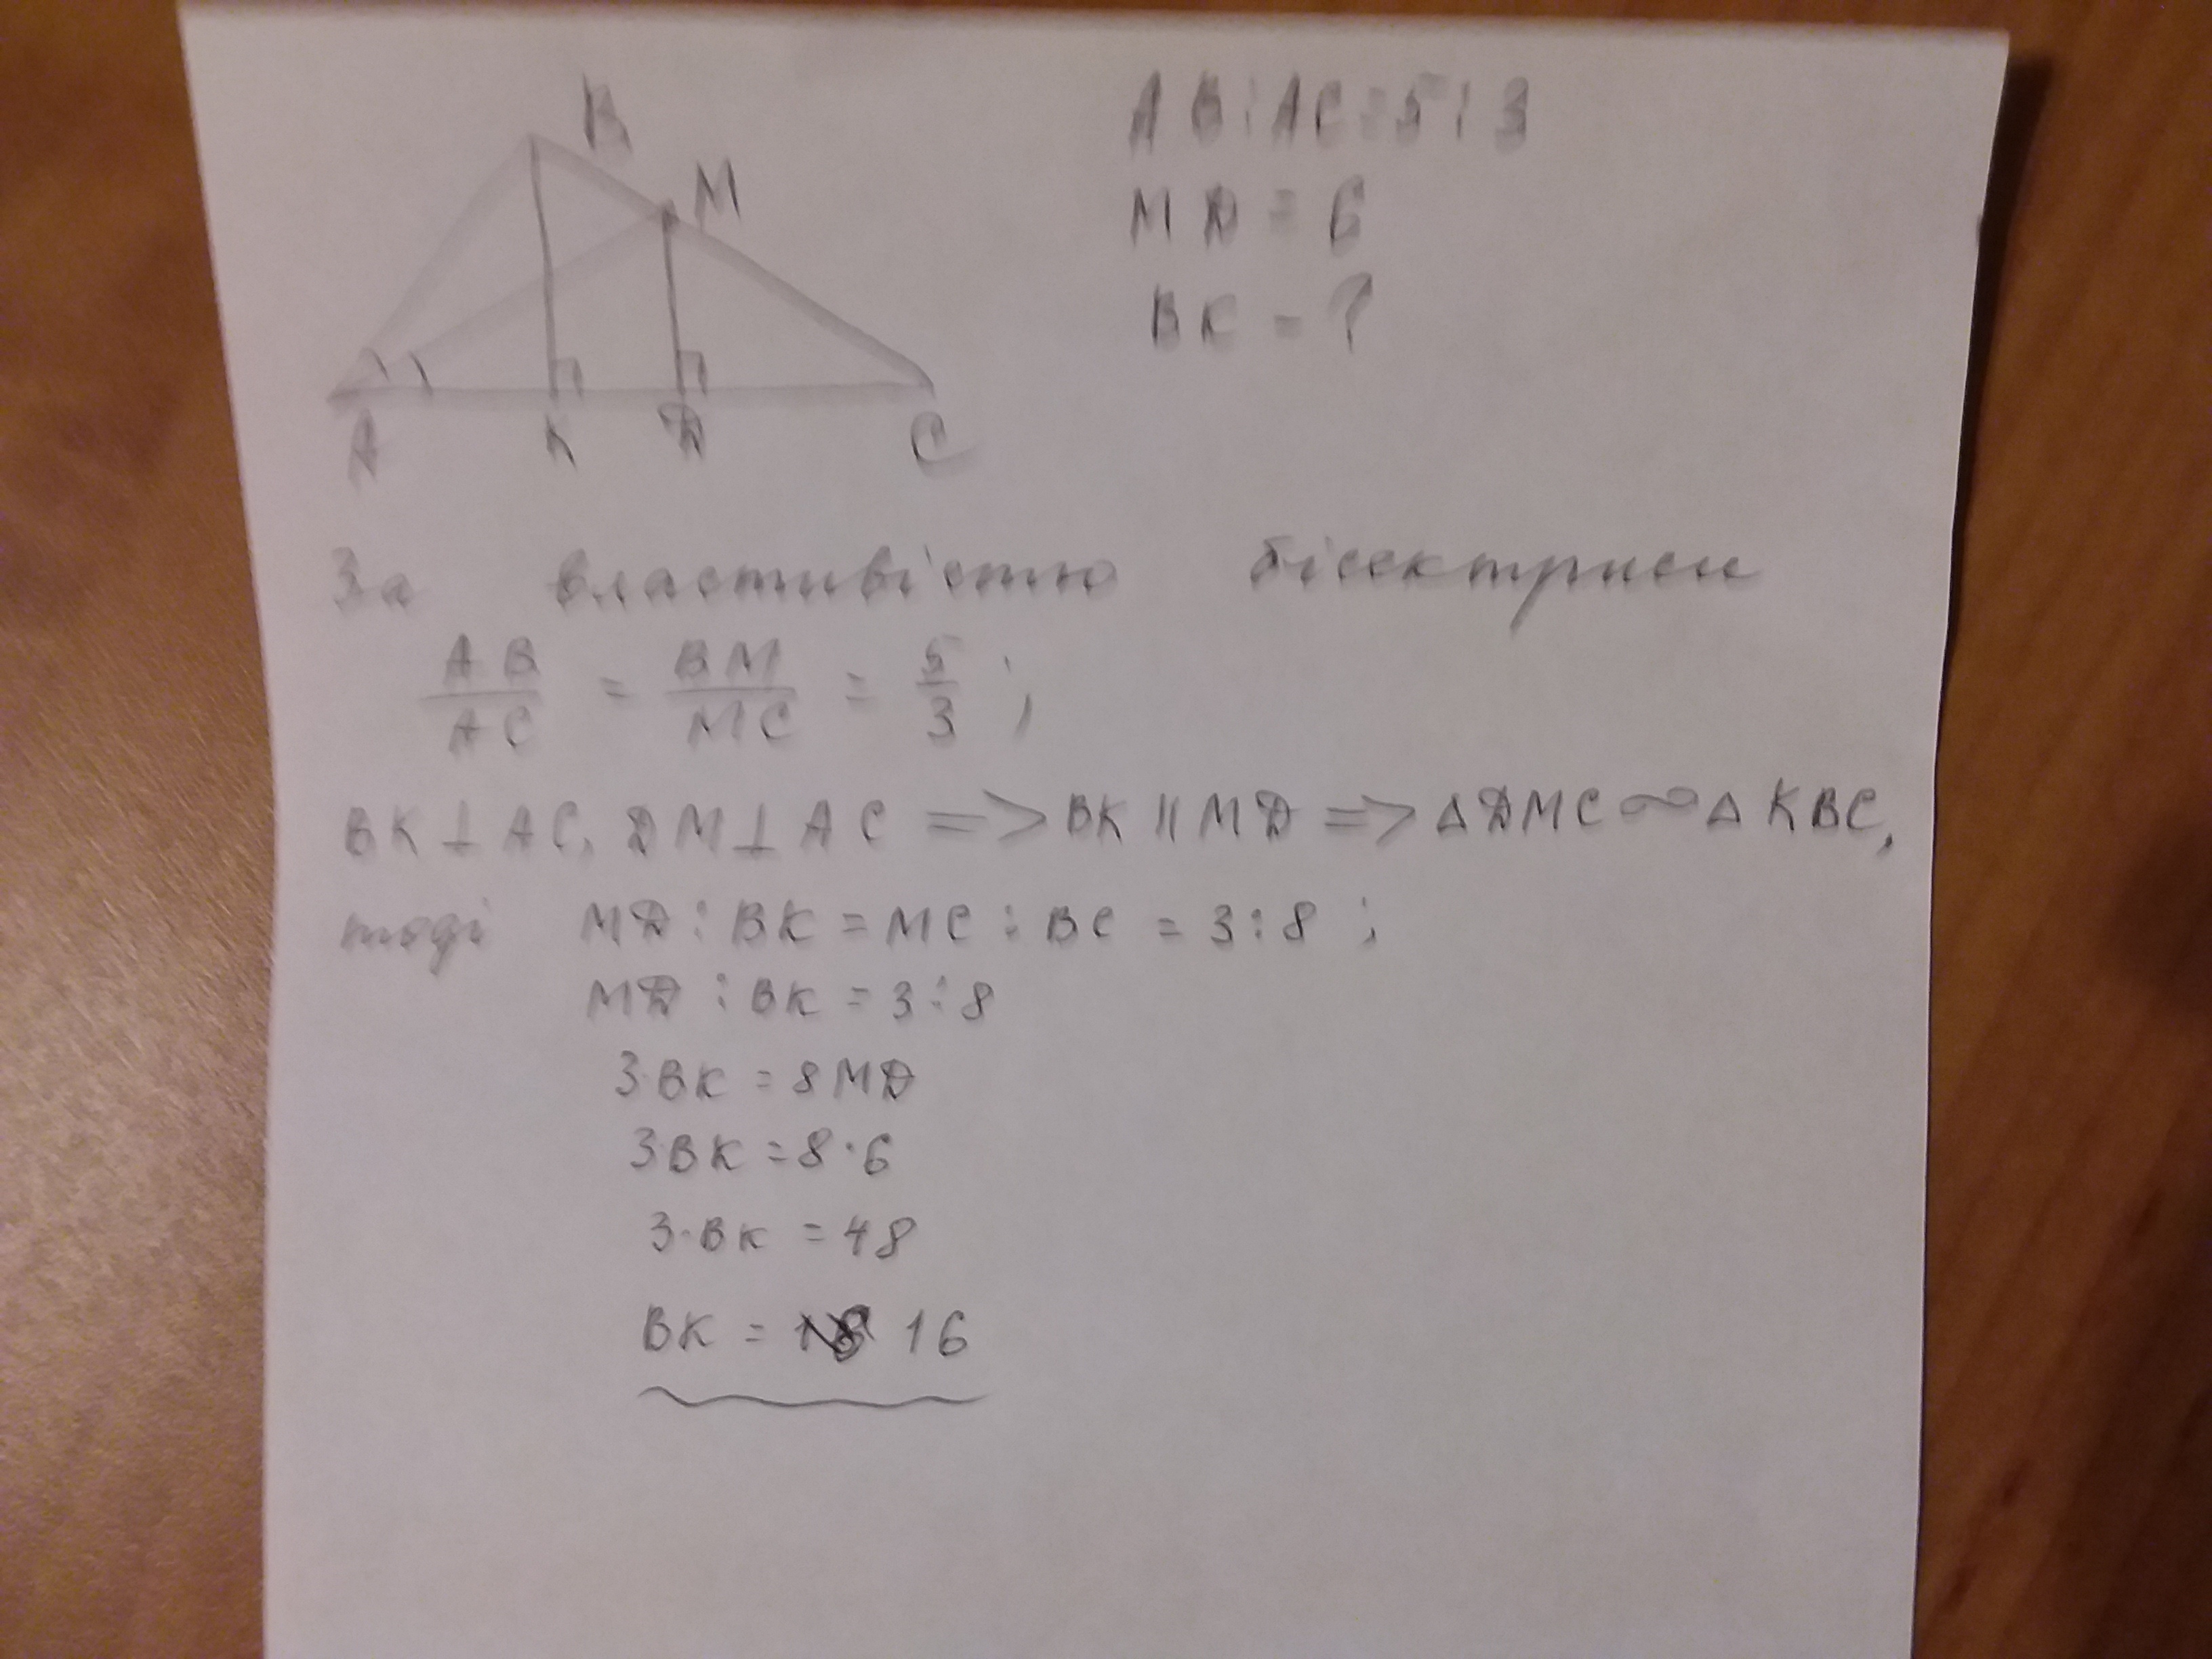 B
M
A K D C
AB : AC = 5 : 3
MD = 6
BK - ?
За властивістю бісектриси
AB/AC = BM/MC = 5/3 ;
BK ⊥ AC, DM ⊥ AC => BK || MD => △DMC ∾ △KBC,
тоді MD : BK = MC : BC = 3 : 8 ;
MD : BK = 3 : 8
3·BK = 8MD
3·BK = 8·6
3·BK = 48
BK = 16